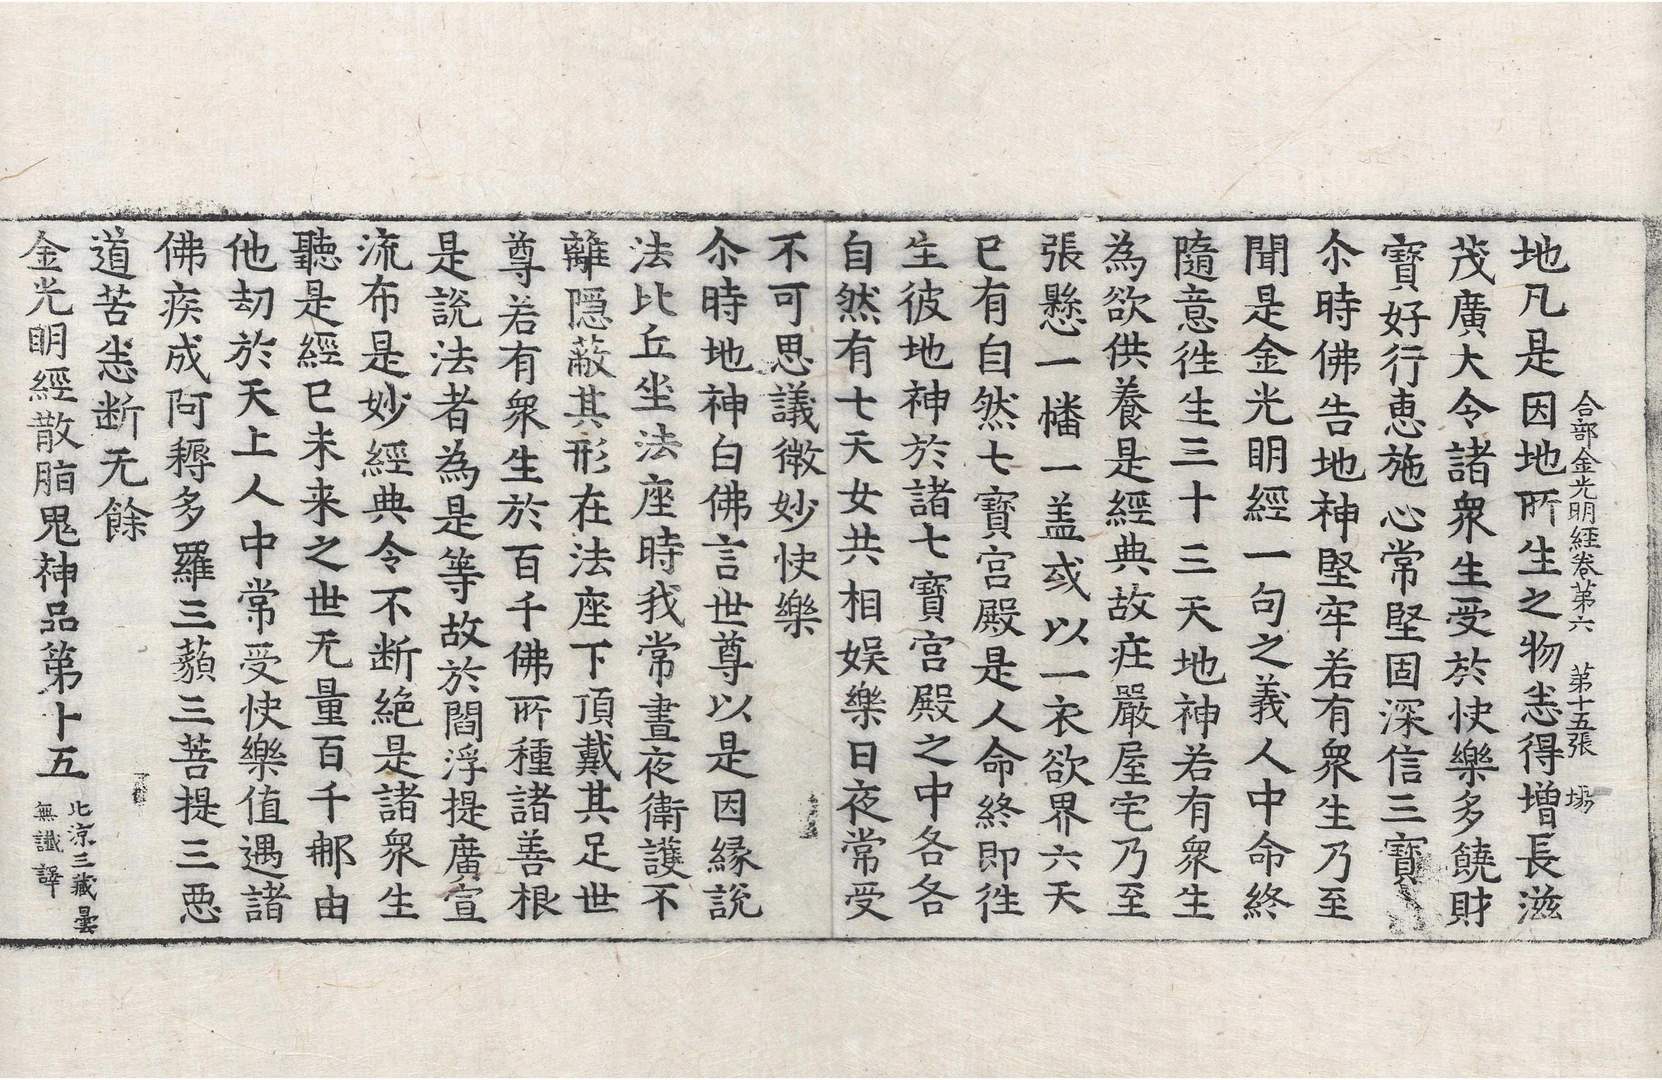 合部金光明經卷第六 第十五張 場
地凡是因地所生之物悉得增長滋
茂廣大令諸衆生受於快樂多饒財
寶好行惠施心常堅固深信三寶
尒時佛告地神堅牢若有衆生乃至
聞是金光明經一句之義人中命終
隨意徃生三十三天地神若有衆生
為欲供養是經典故莊嚴屋宅乃至
張懸一幡一盖或以一衣欲界六天
已有自然七寶宮殿是人命終即徃
生彼地神於諸七寶宮殿之中各各
自然有七天女共相娛樂日夜常受
不可思議微妙快樂
尒時地神白佛言世尊以是因緣說
法比丘坐法座時我常晝夜衛護不
離隱蔽其形在法座下頂戴其足世
尊若有衆生於百千佛所種諸善根
是說法者為是等故於閻浮提廣宣
流布是妙經典令不断絕是諸衆生
聽是經已未来之世无量百千那由
他劫於天上人中常受快樂值遇諸
佛疾成阿耨多羅三藐三菩提三惡
道苦悉断无餘
金光明經散脂鬼神品第十五 北涼三藏曇
無讖譯